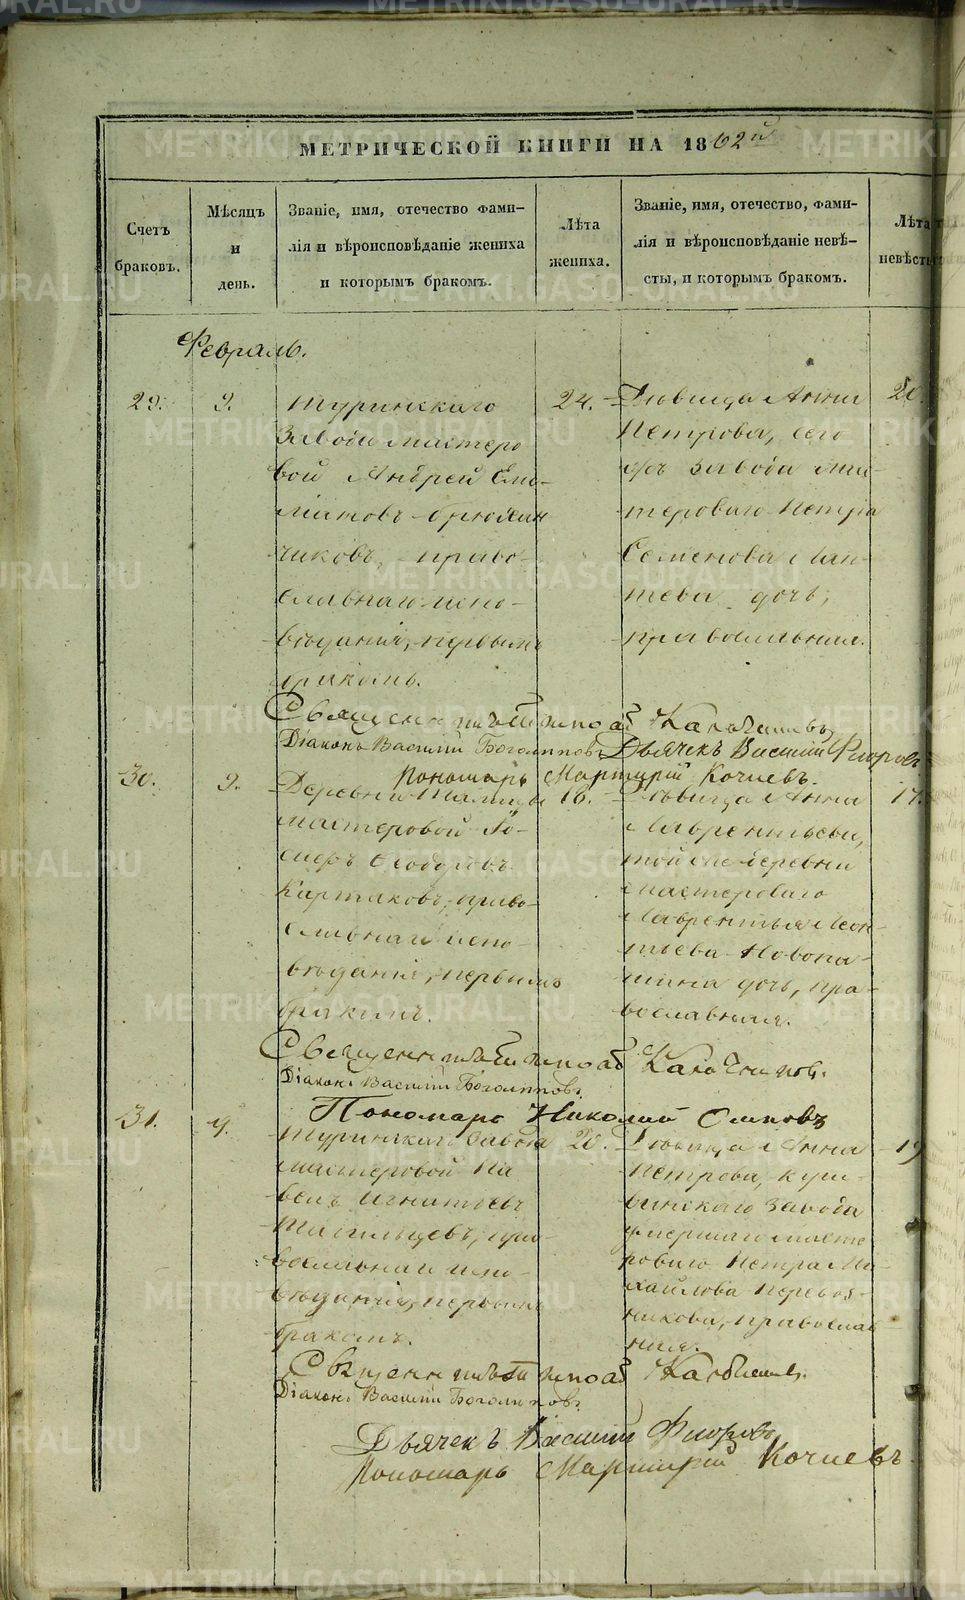 МЕТРИЧЕСКОЙ КНИГИ НА 1862й
Счетъ
браковъ.
Мѣсяцъ
и
день.
Званіе, имя, отечество фами-
лія и вѣроисповѣданіе жениха
и которымъ бракомъ.
Лѣта
жениха.
Званіе, имя, отечество, фами-
лія и вѣроисповѣданіе невѣ-
сты, и которымъ бракомъ.
Лѣта
невѣсты
Февраль.
29.
9.
Туринскаго
завода мастеро
вой Андрей
чиковъ, право-
славнаго испо-
вѣданія, первымъ
бракомъ.
24.
Дѣвица Анна
Петрова, сего
же завода мас-
тероваго Петра
Семенова Лап-
тева дочь,
православная.
20.
Священникъ Калачниковъ
Діаконъ Василій Боголѣповъ. Дьячекъ Василій Флоровъ
Пономарь Мартирій Кочневъ.
30.
9.
Деревни
мастеровой
Ѳеодоровъ
Картаковъ, право-
славнаго испо-
вѣданія, первымъ
бракомъ.
18.
Дѣвица Анна
Лаврентьева,
той же деревни
мастероваго
Лаврентья Леон-
тьева Новопа-
шина дочь, пра-
вославная.
17.
Священникъ Калачниковъ.
Діаконъ Василій Боголѣповъ.
Пономарь Николай Осиповъ
31.
9.
Туринскаго завода
мастеровой Па
велъ Игнатьевъ
Тагильцевъ, пра-
вославнаго испо-
вѣданія, первымъ
бракомъ.
20.
Дѣвица Анна
Петрова, Куш-
винскаго завода
умершаго масте
роваго Петра Ми-
хайлова Перевоз-
никова, православ-
ная.
19
Священникъ Калачниковъ.
Діаконъ Василій Боголѣповъ.
Дьячекъ Василій Флоровъ
Пономарь Мартирій Кочневъ.
METRIKI.GASO-URAL.RU